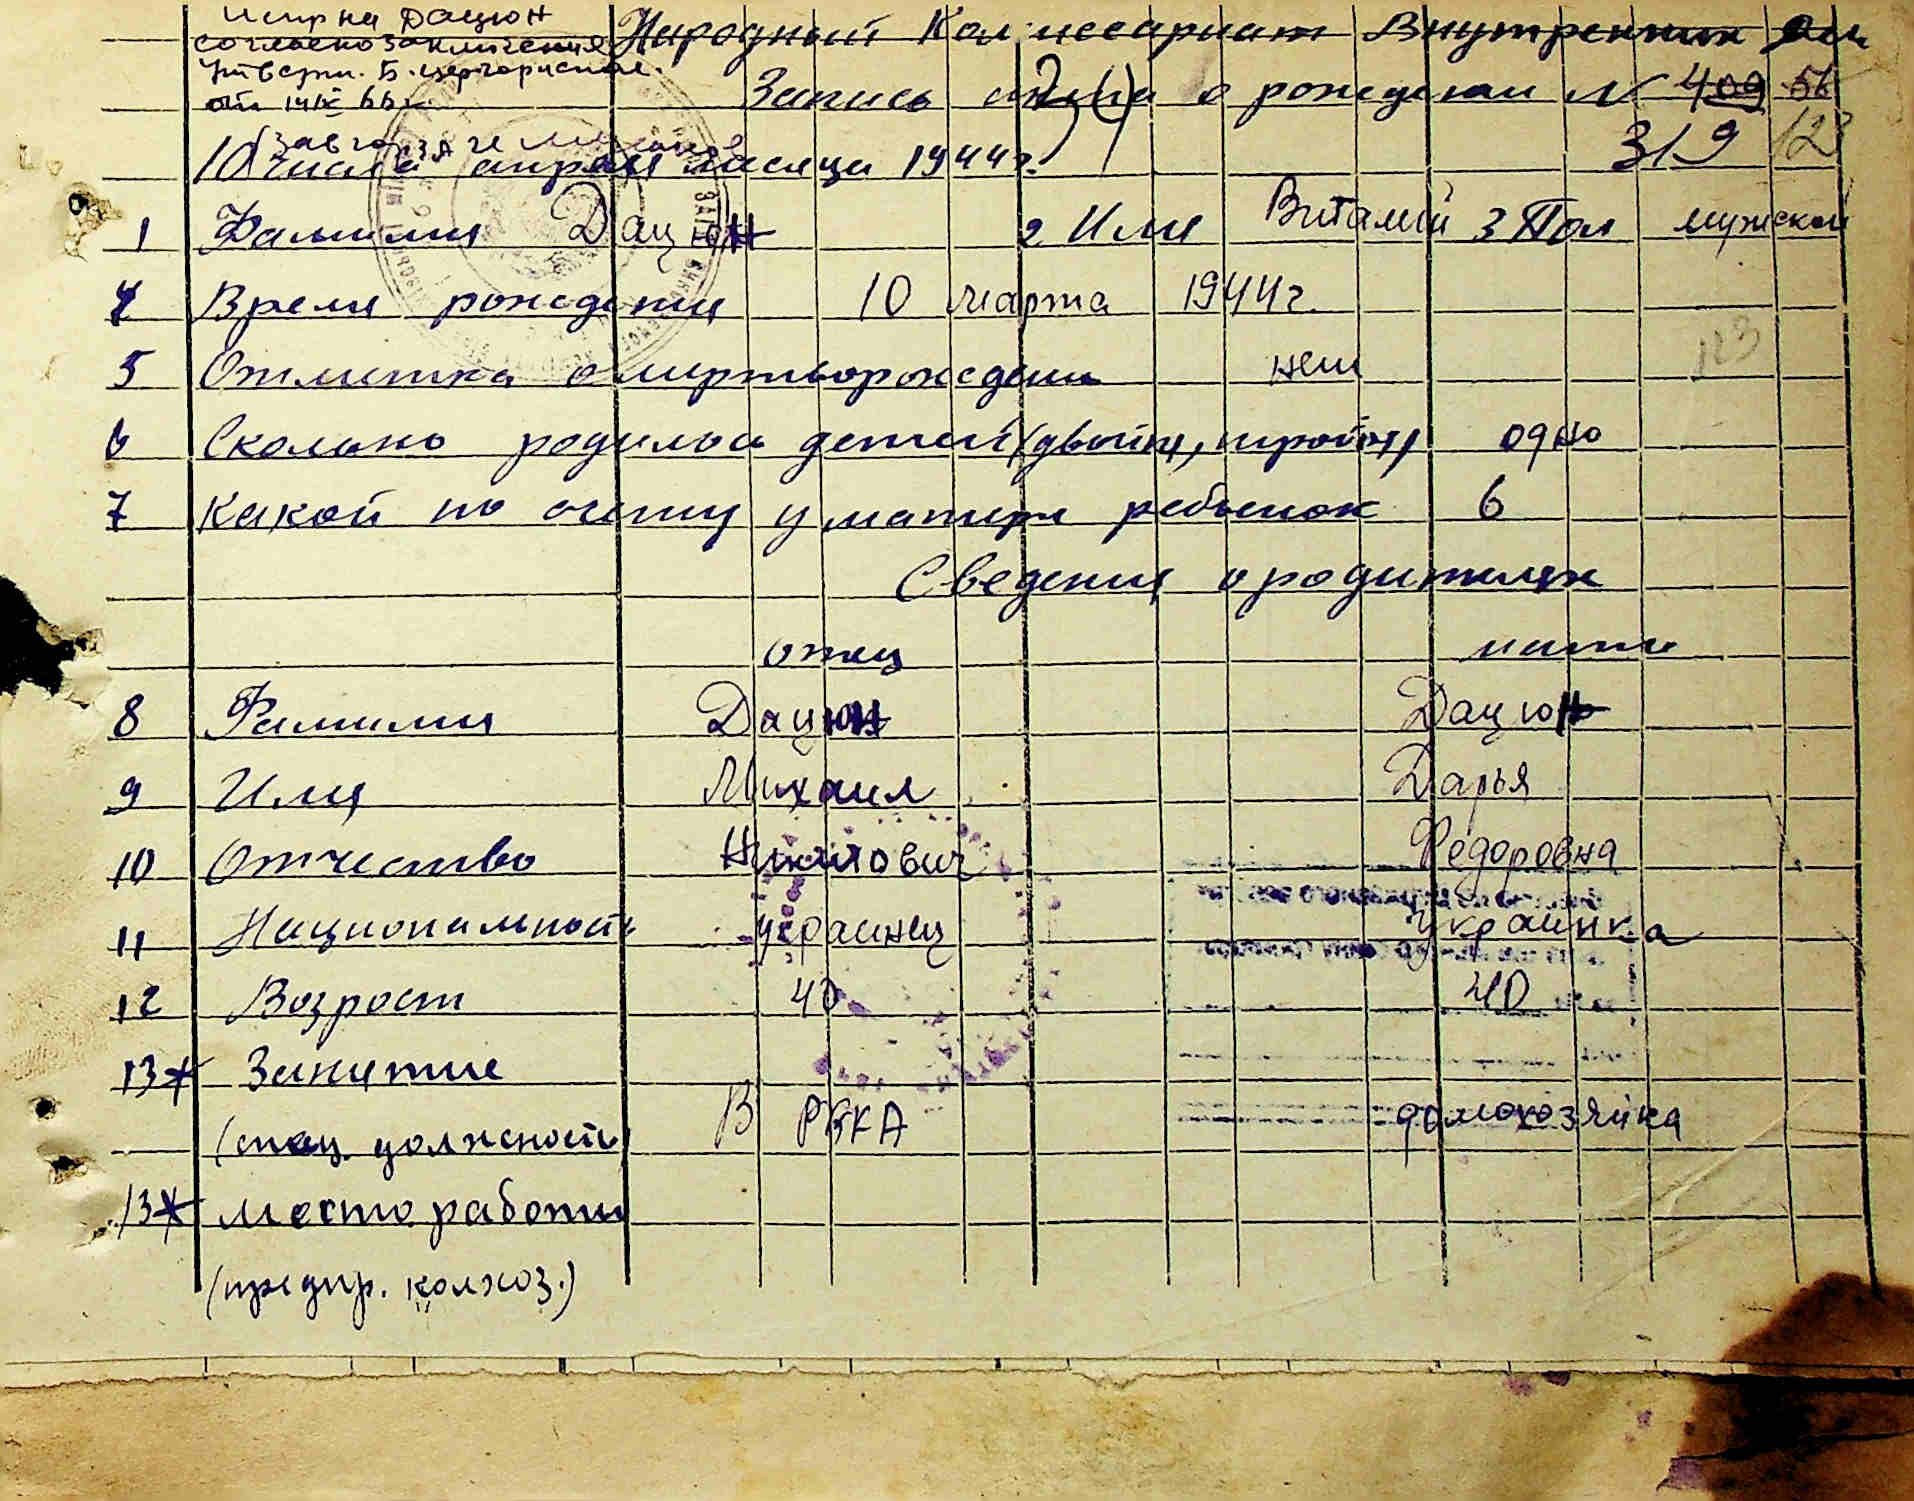 Испр на Дацюн
согласно заключения
Утверж. Б.
от 14 IX 66 г.
Народный Комиссариат Внутренних Дел
Запись о рождении N 409 56
319 123
10 числа апреля месяца 1944 г.
1 Фамилия Дацюн 2 Имя Виталий 3 Пол мужской
4 Время рождения 10 марта 1944 г.
5 Отметка о мертворождении нет
113
6 Сколько родилось детей (двойня, тройня) одно
7 Какой по счету у матери ребенок 6
Сведения о родителях
отец мать
8 Фамилия Дацюн Дацюн
9 Имя Михаил Дарья
10 Отчество Никитович Федоровна
11 Национальность украинец украинка
12 Возраст 40 40
13* Занятие
(спец. должность) В РККА домохозяйка
13* место работы
(предпр. колхоз.)